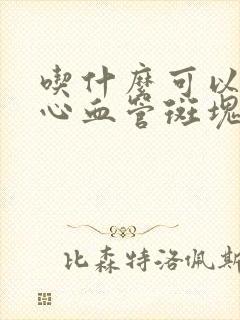 喫什麼可以
心血管斑塊
比森特洛佩斯